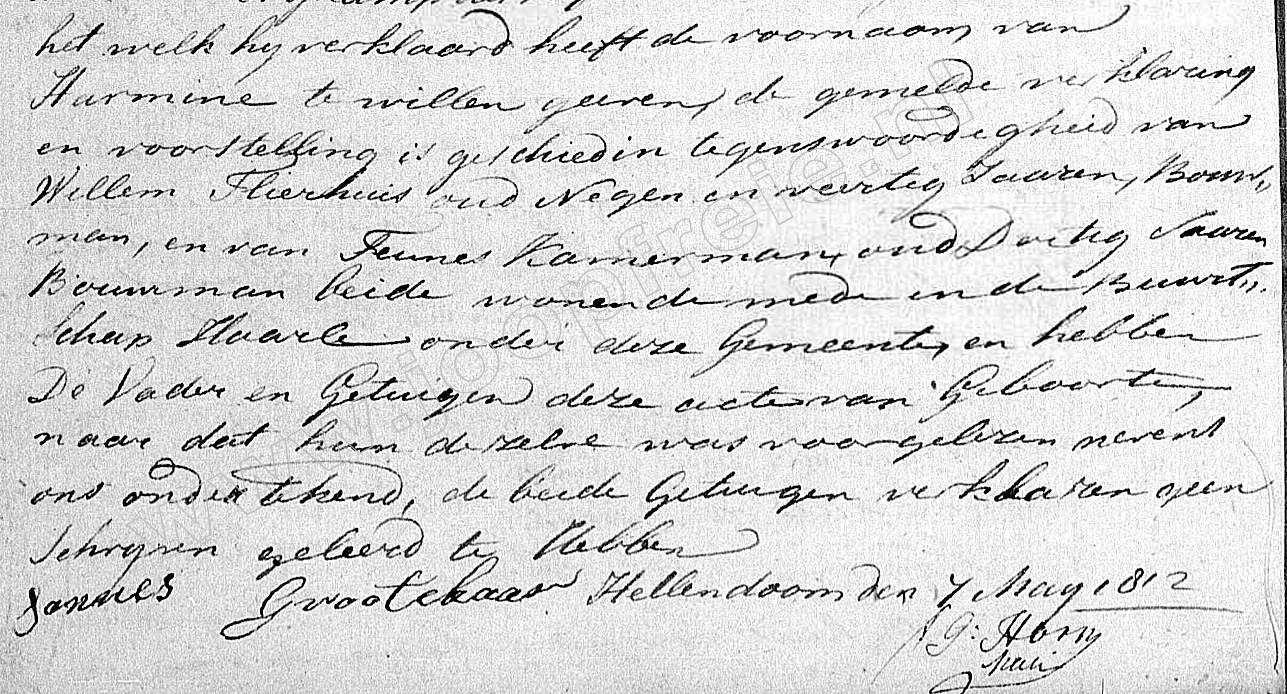 het welk hy verklaard heeft de voornaam van
Harmine te willen geeven, de gemelde verklaring
en voorstelling is geschied in tegenswoordigheid van
Willem Flierhuis oud Negen en veertig Jaaren, Bouw„
man, en van Teunes Kamerman, oud Dertig Jaaren
Bouwman beide wonende mede in de Buurt„
schap Haarle onder deze Gemeente, en hebben
De Vader en Getuigen deze acte van Geboorte,
naar dat hun dezelve was voorgelezen nevens
ons ondertekend, de beide Getuigen verklaren geen
Schryven geleerd te Hebben
Jannes Grootelaar Hellendoorn den 7 May 1812